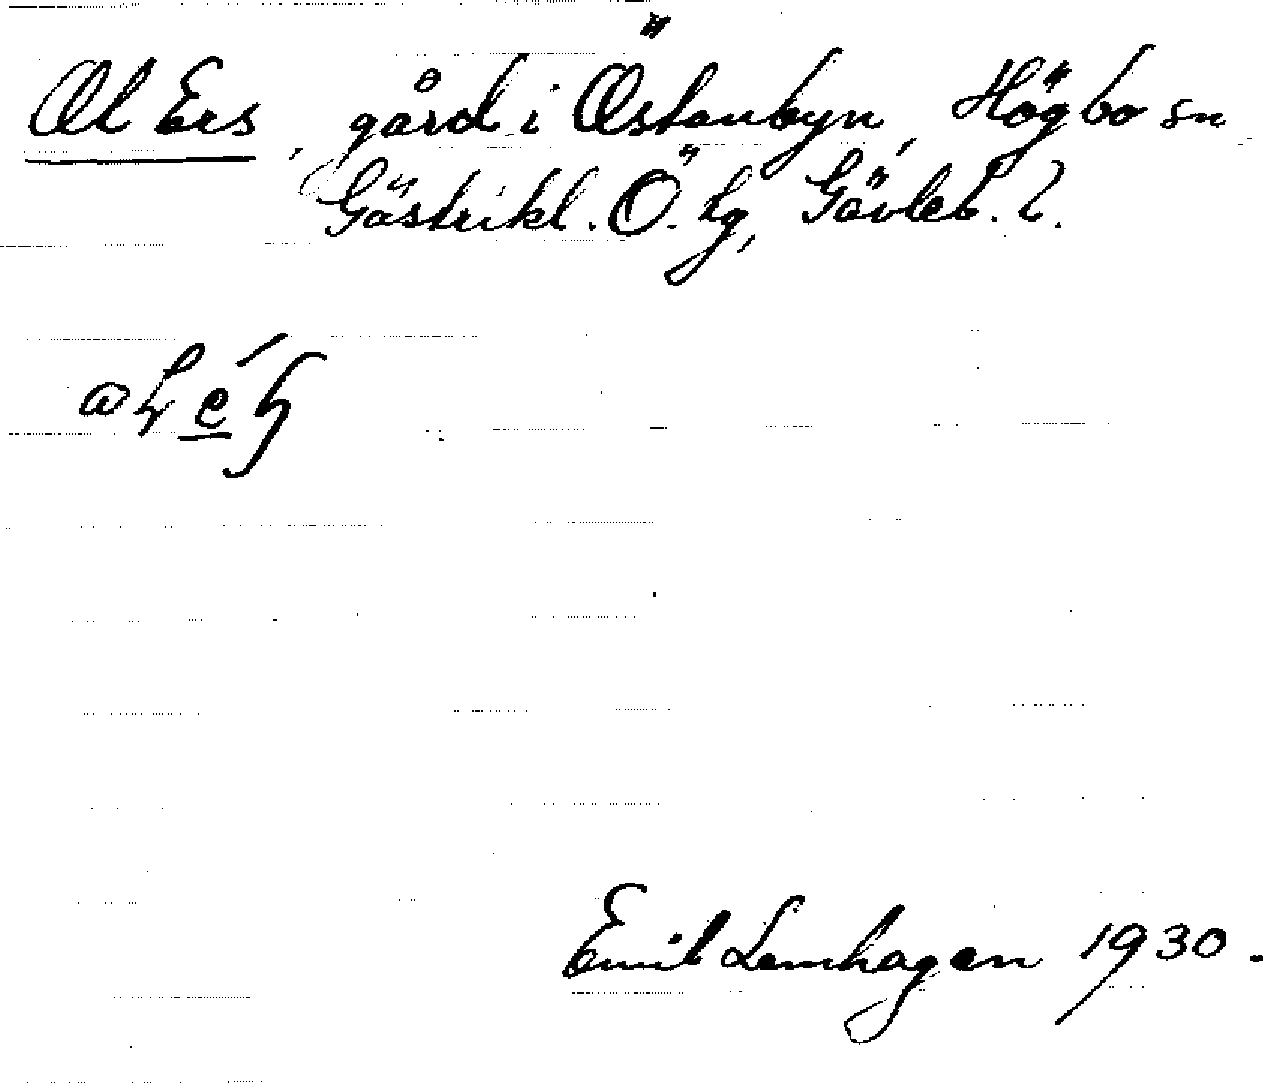 Ol Ers, gård i Östanbyn, Högbo sn
Gästrikl. Ö. tg, Gävleb. l.
Emil Lemhagen 1930.